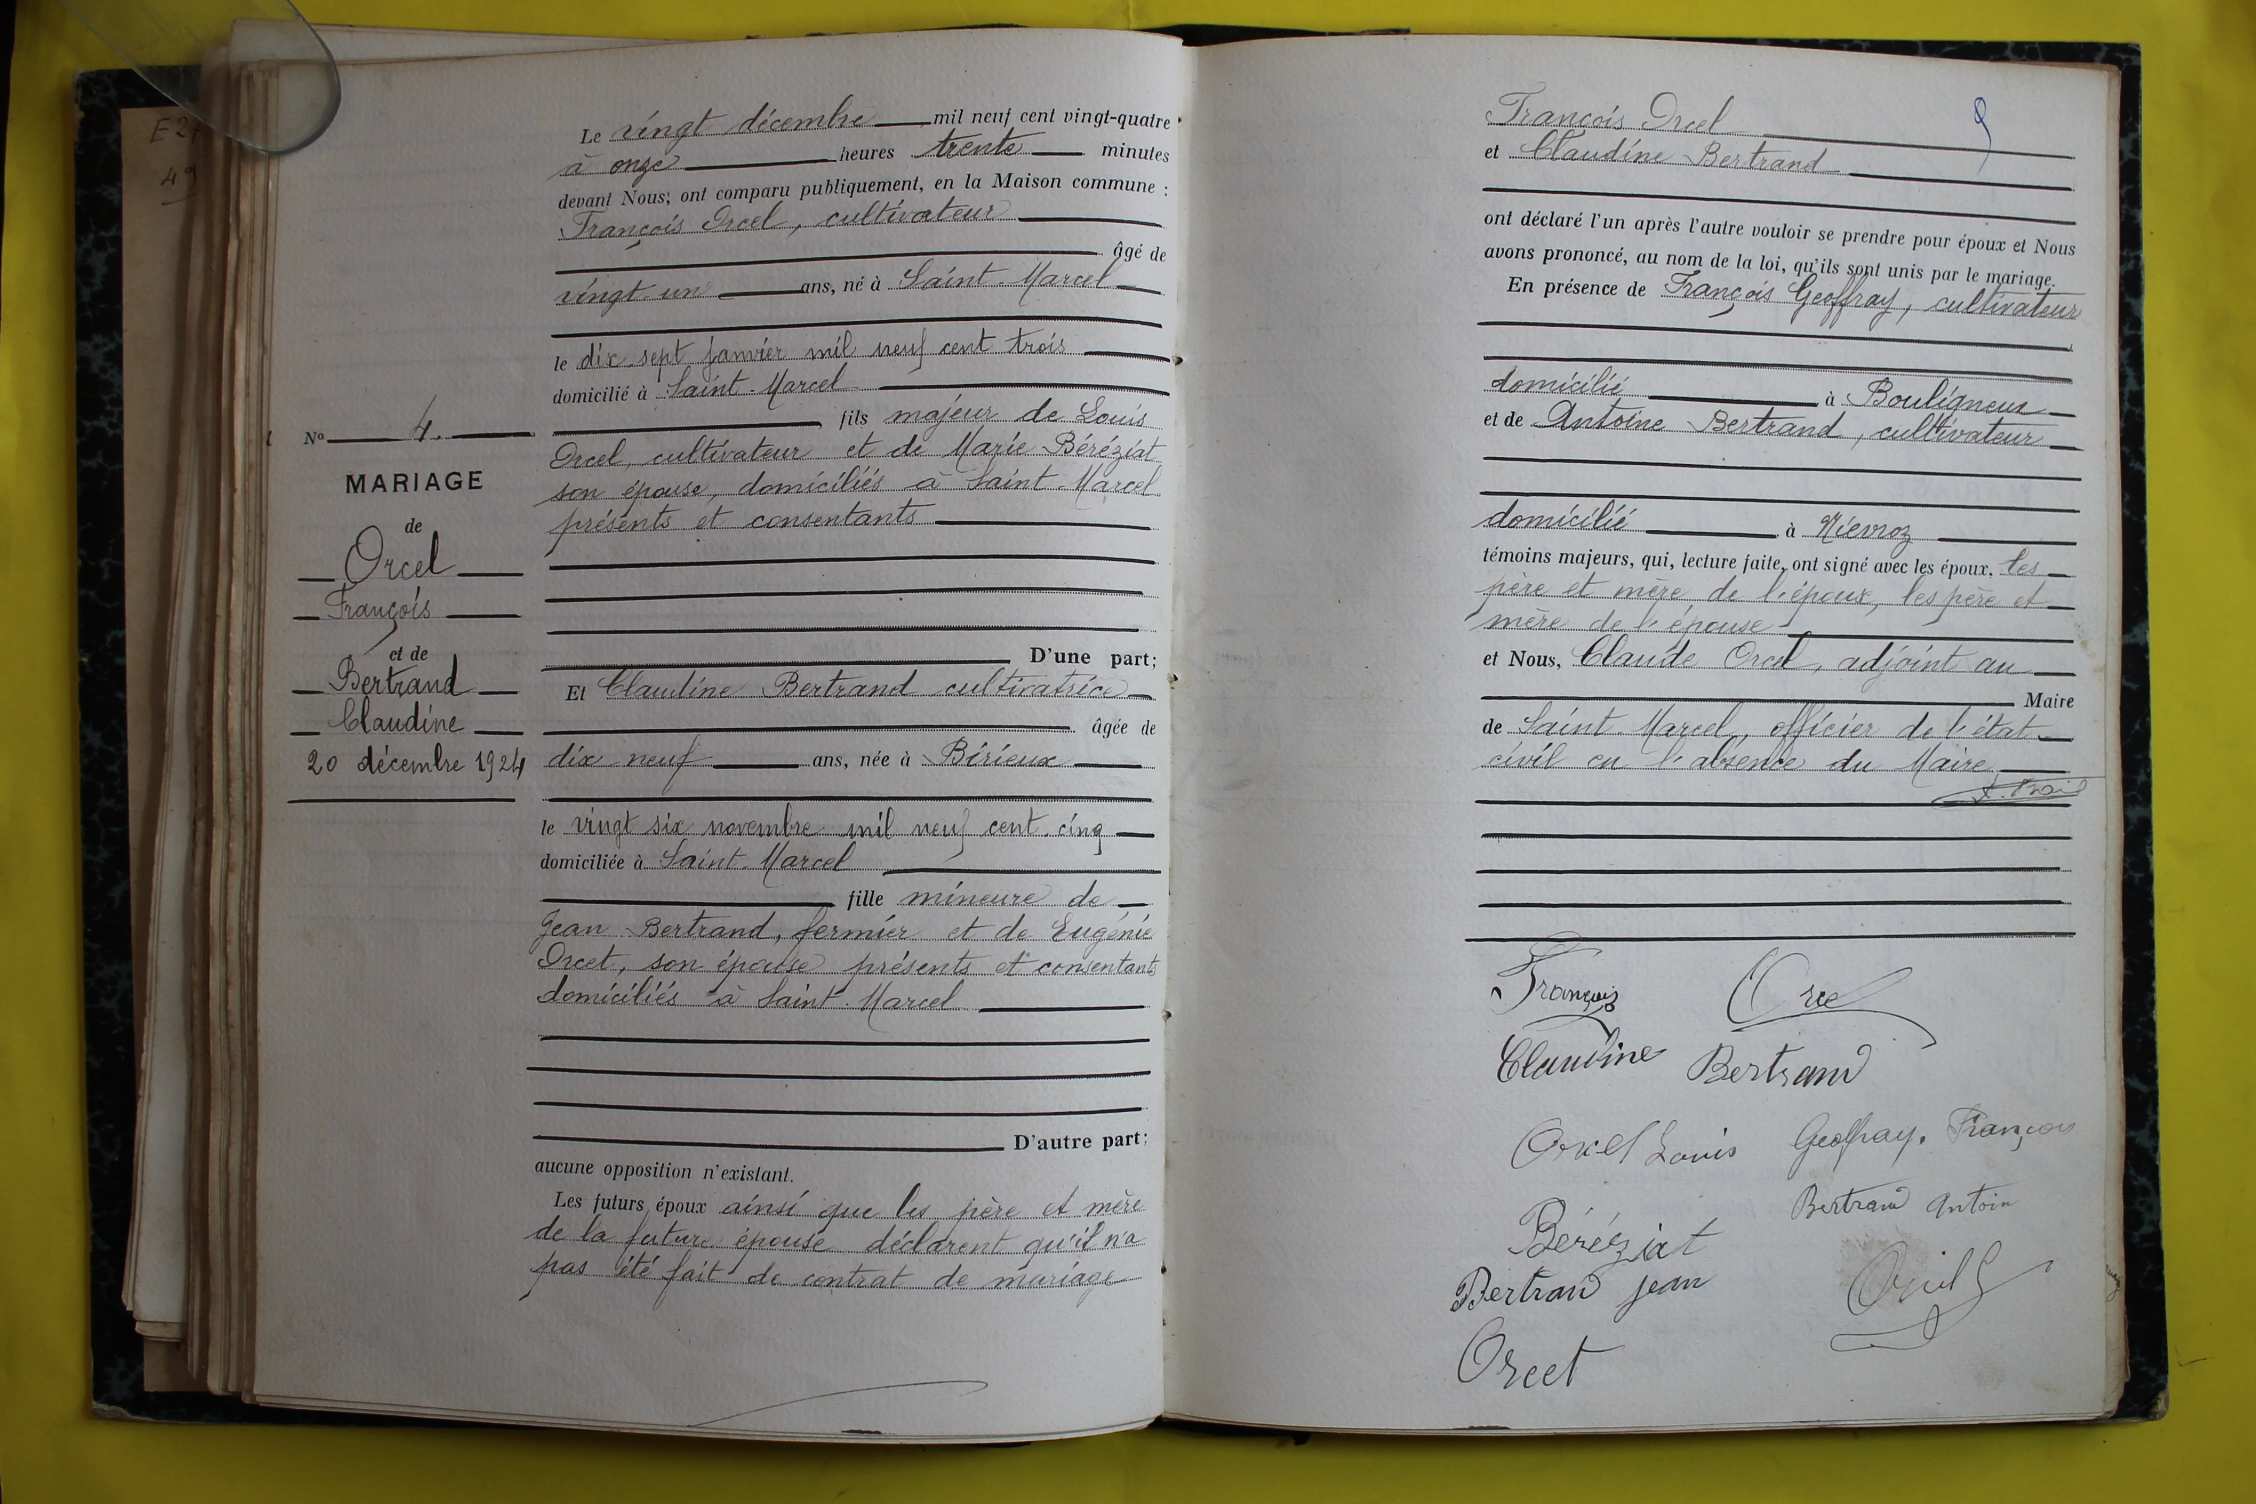 E 27
49
N° 4.
MARIAGE
de
Orcel
François
et de
Bertrand
Claudine
20 décembre 1924
Le vingt décembre mil neuf cent vingt-quatre
à onze heures trente minutes
devant Nous; ont comparu publiquement, en la Maison commune :
François Orcel, cultivateur
âgé de
vingt un ans, né à Saint-Marcel
le dix sept janvier mil neuf cent trois
domicilié à Saint-Marcel
fils majeur de Louis
Orcel, cultivateur et de Marie Béréziat
son épouse, domiciliés à Saint-Marcel
présents et consentants
D'une part;
Et Claudine Bertrand cultivatrice
âgée de
dix neuf ans, née à Birieux
le vingt six novembre mil neuf cent cinq
domiciliée à Saint-Marcel
fille mineure de
Jean Bertrand, fermier et de Eugénie
Orcet, son épouse présents et consentants
domiciliés à Saint-Marcel
D'autre part;
aucune opposition n'existant.
Les futurs époux ainsi que les père et mère
de la future épouse déclarent qu'il n'a
pas été fait de contrat de mariage
9
François Orcel
et Claudine Bertrand
ont déclaré l'un après l'autre vouloir se prendre pour époux et Nous
avons prononcé, au nom de la loi, qu'ils sont unis par le mariage.
En présence de François Geoffray, cultivateur
domicilié à Bouligneux
et de Antoine Bertrand, cultivateur
domicilié à Niévroz
témoins majeurs, qui, lecture faite, ont signé avec les époux, les
père et mère de l'époux, les père et
mère de l'épouse
et Nous, Claude Orcel, adjoint au
Maire
de Saint-Marcel, officier de l'état-
civil en l'absence du Maire
François Orcel
Claudine Bertrand
Orcel Louis Geoffray. François
Béréziat Bertrand Antoin
Bertrand Jean
Orcet